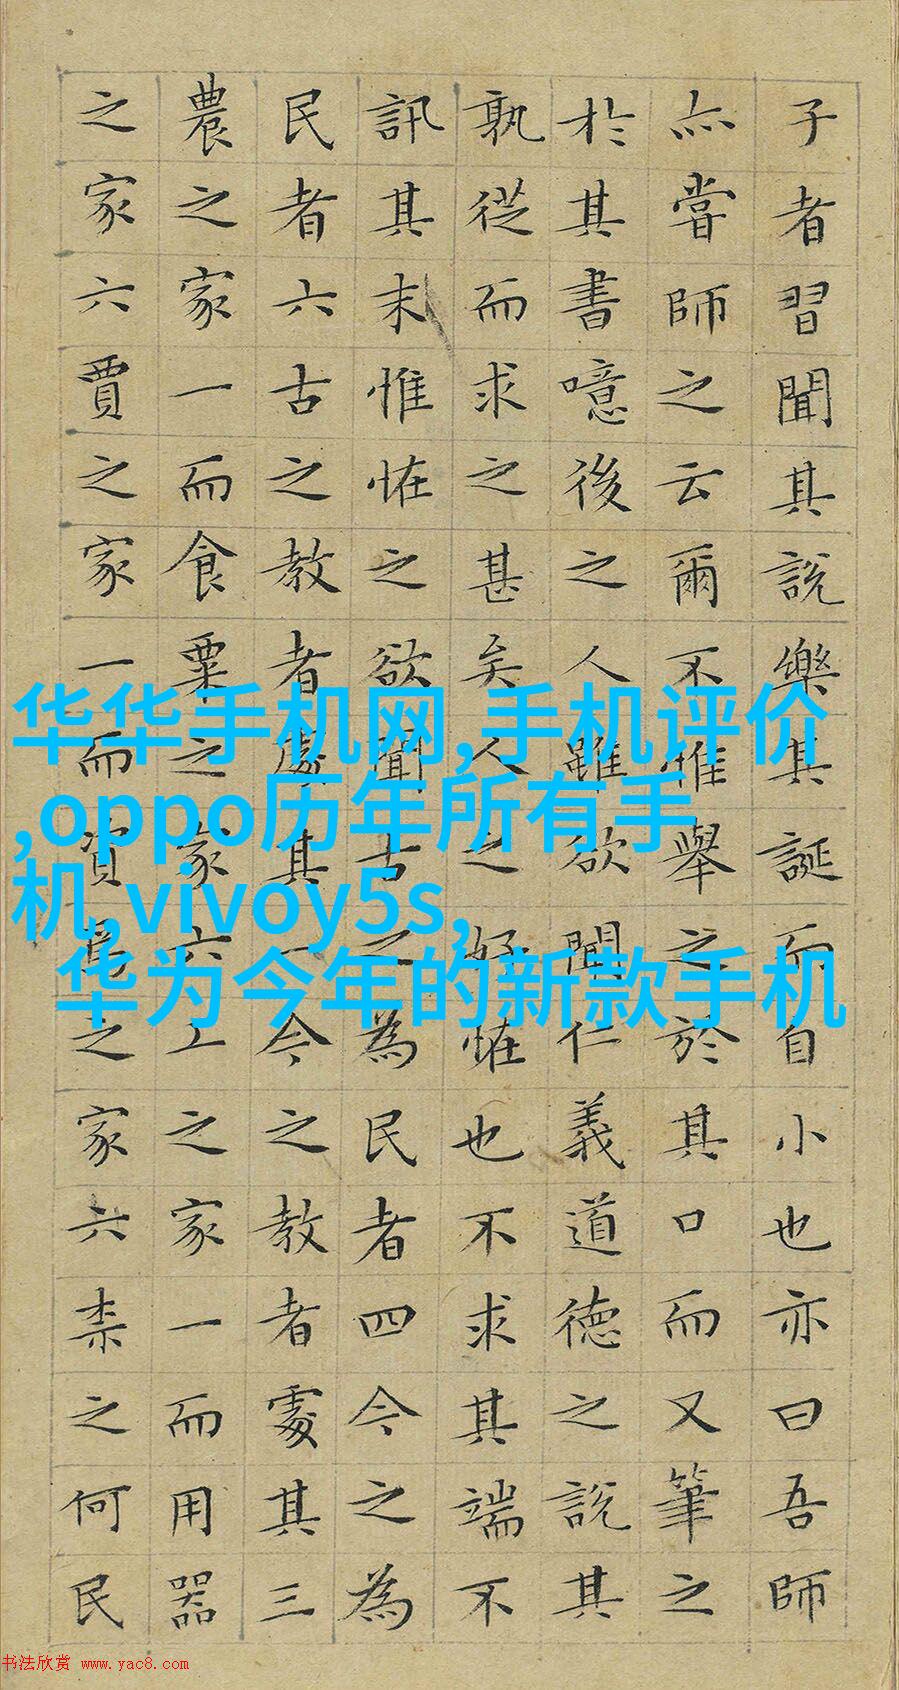 子者習聞其說樂其誕而自小也亦曰吾師
亦嘗師之云爾不惟舉之於其口而又筆之
於其書噫後之人雖欲聞仁義道德之說其
孰從而求之甚矣人之好恠也不求其端不
訊其末惟恠之欲聞古之為民者四今之為
民者六古之教者處其一今之教者處其三
農之家一而食粟之家六工之家一而用器
之家六賈之家一而資焉之家六柰之何民
华华手机网,手机评价
,oppo历年所有手
机,vivoy5s,
华为今年的新款手机
书法欣赏 www.yac8.com